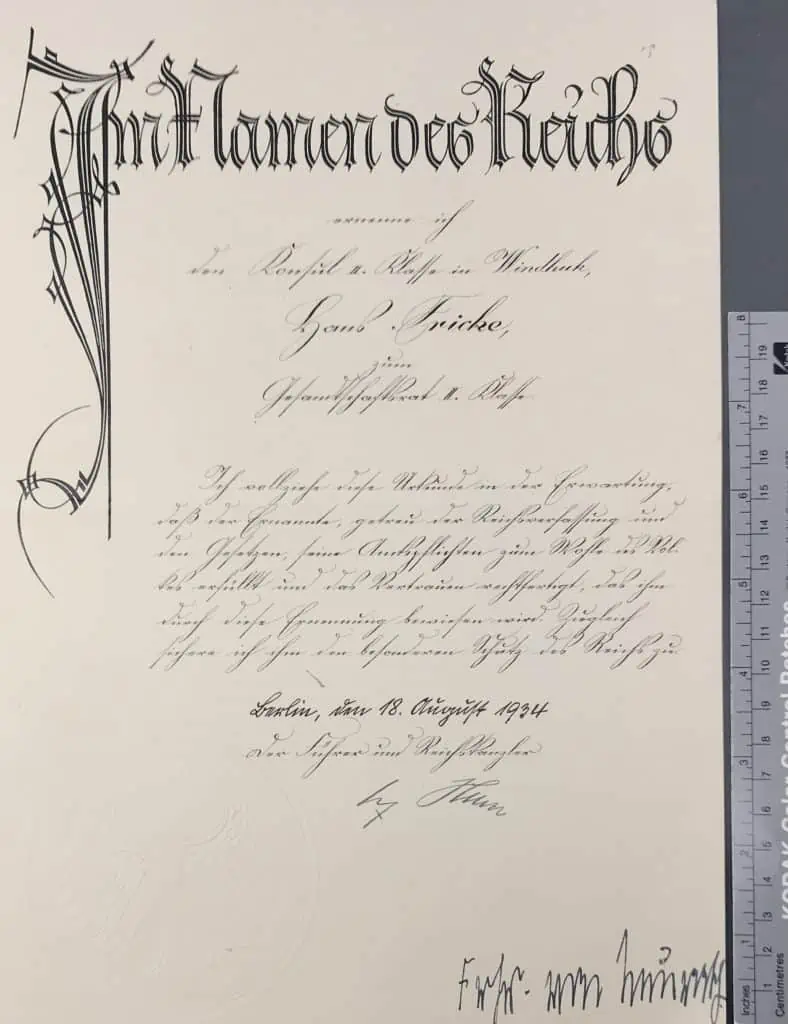 Im Namen des Reichs
ernenne ich
den Konsul II. Klasse in Windhuk,
Hans Fricke,
zum
Gesandtschaftsrat II. Klasse
Ich vollziehe diese Urkunde in der Erwartung,
daß der Ernannte, getreu der Reichsverfassung und
den Gesetzen, seine Amtspflichten zum Wohle des Vol-
kes erfüllt und das Vertrauen rechtfertigt, das ihm
durch diese Ernennung bewiesen wird. Zugleich
sichere ich ihm den besonderen Schutz des Reichs zu.
Berlin, den 18. August 1934
Der Führer und Reichskanzler
Frhr. von Neurath
8
7
6
5
4
3
2
1
Inches
19
18
17
16
15
14
13
12
11
10
9
8
7
6
5
4
3
2
1
Centimetres
KODAK Color Control Patches